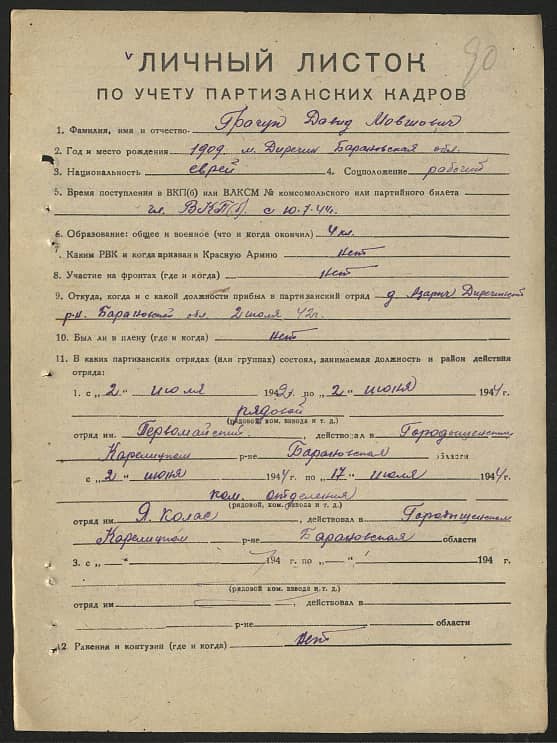 90
ЛИЧНЫЙ ЛИСТОК
ПО УЧЕТУ ПАРТИЗАНСКИХ КАДРОВ
1. Фамилия, имя и отчество Трагун Давид Мовшович
2. Год и место рождения 1909 м. Диречин Барановская обл.
3. Национальность еврей 4. Соцположение рабочий
5. Время поступления в ВКП(б) или ВЛКСМ № комсомольского или партийного билета
чл. ВКП(б) с 10.7.44г.
6. Образование: общее и военное (что и когда окончил) 4 кл.
7. Каким РВК и когда призван в Красную Армию нет
8. Участие на фронтах (где и когда) нет
9. Откуда, когда и с какой должности прибыл в партизанский отряд д Диречинский
р-н. Барановской обл. 2 июля 42г.
10. Был ли в плену (где и когда) нет
11. В каких партизанских отрядах (или группах) состоял, занимаемая должность и район действия
отряда:
1. с „2" июля 1942г. по „2" июня 1944г.
рядовой
(рядовой, ком. взвода и т. д.)
отряд им. Первомайский, действовал в Городищенском
Карелицком р-не Барановская области
с „2" июня 1944г по „17" июля 1944г.
ком. отделения
(рядовой, ком. взвода и т. д.)
отряд им. Я. Колас, действовал в Городищенском
Карелицком р-не Барановская области
3. с „ " 194 г. по „ " 194 г.
(рядовой ком. взвода и т. д.)
отряд им , действовал в
р-не области
12 Ранения и контузии (где и когда) Нет